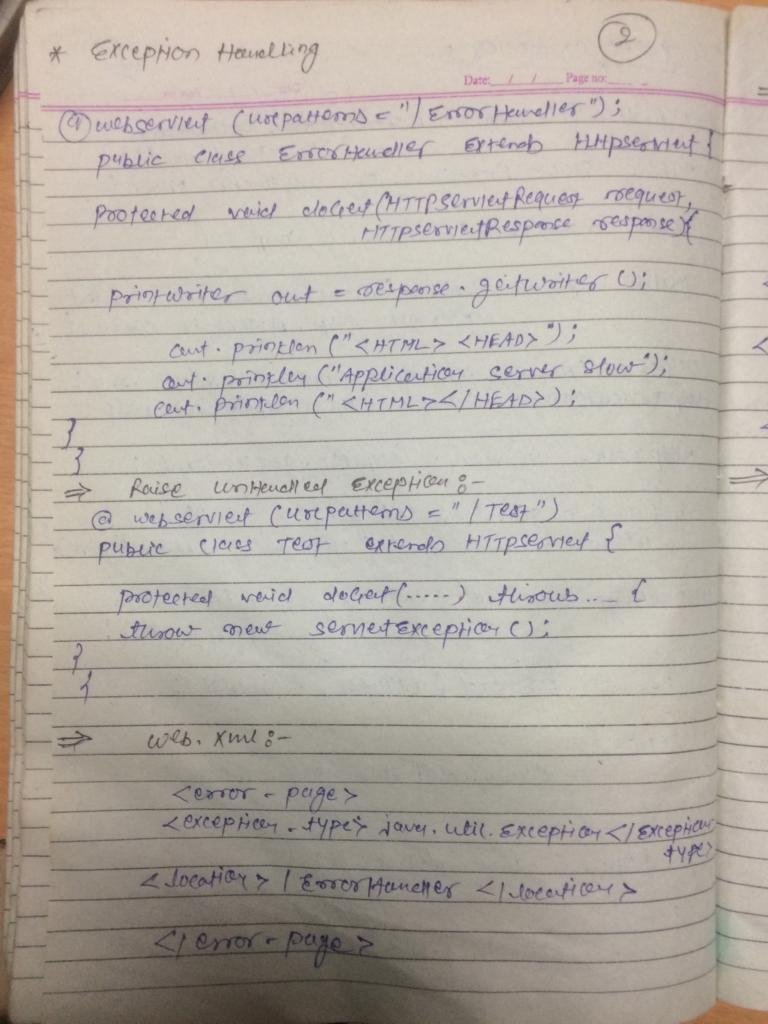 2
* Exception Handling
Date: / / Page no:
@webservlet (urlpatterns = "/ErrorHandler");
public class ErrorHandler Extends HttpServlet {
Protected void doGet(HTTPServletRequest request,
HTTPServletResponse response){
printwriter out = response.getwriter ();
out.println ("<HTML> <HEAD>");
out.println ("Application server slow");
out.println ("<HTML></HEAD>);
}
}
⇒ Raise UnHandled Exception :-
@webservlet (urlpatterns = "/Test")
public class Test extends HTTPservlet {
protected void doGet(.....) throws... {
throw new servletException ();
}
{
⇒ web.xml :-
<error-page>
<exception-type> java.util.Exception </Exception
type>
<location> /ErrorHandler </location>
</error-page>